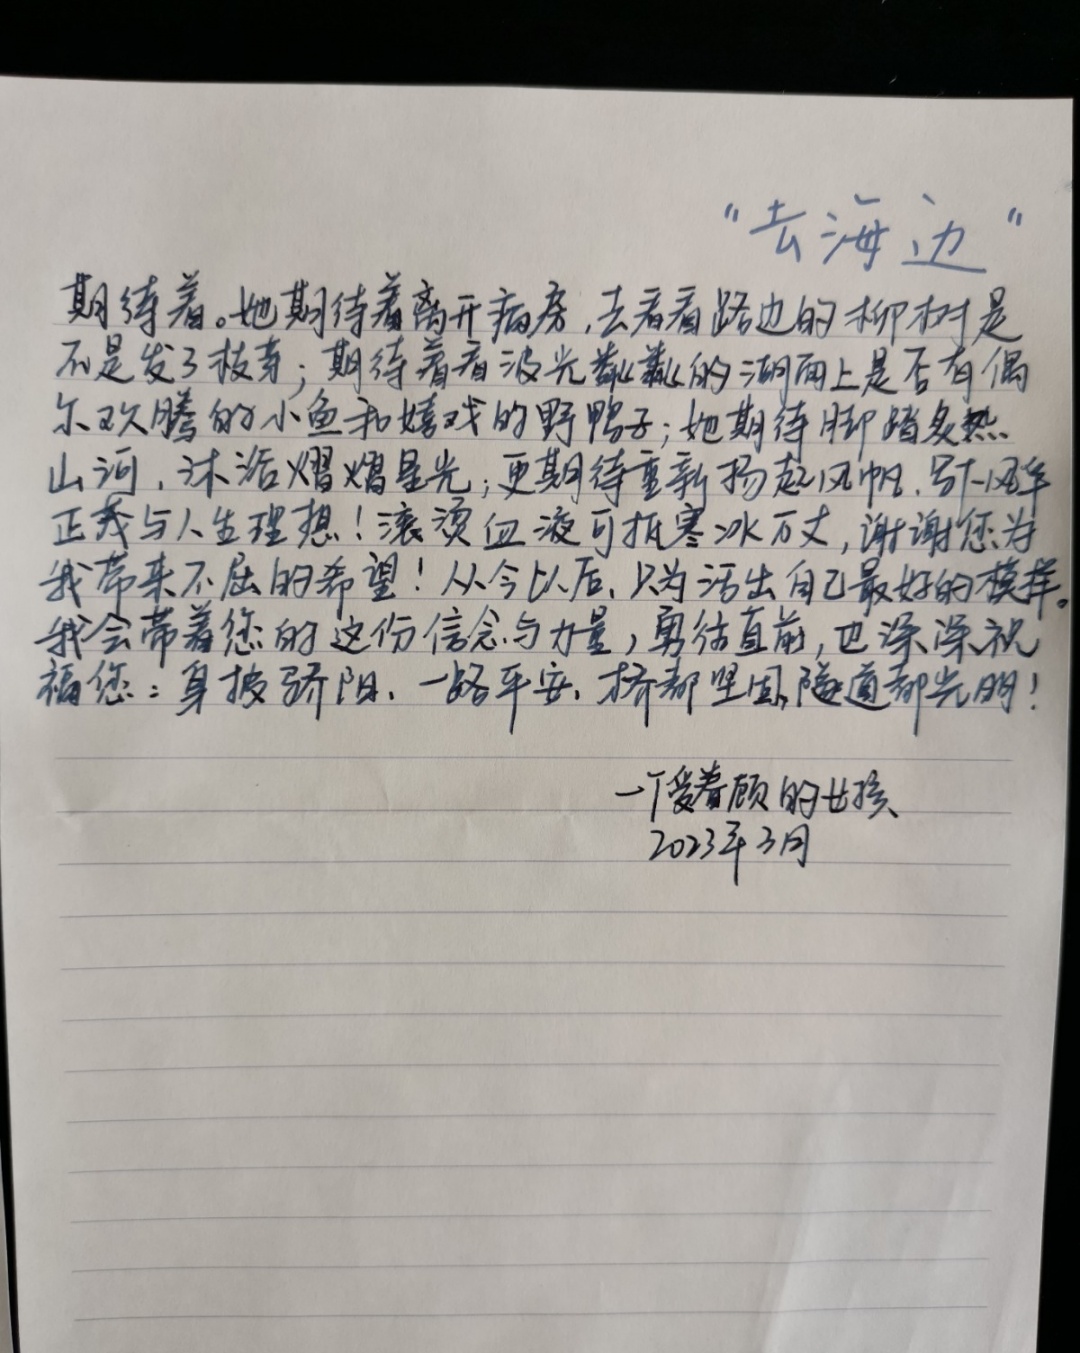 “去海边”
期待着。她期待着离开病房，去看看路边的柳树是
不是发了枝芽；期待着看波光粼粼的湖面上是否有偶
尔欢腾的小鱼和嬉戏的野鸭子；她期待脚踏炙热
山河，沐浴熠熠星光；更期待重新扬起风帆，
正茂与人生理想！滚烫血液可抵寒冰万丈，谢谢您为
我带来不屈的希望！从今以后，只为活出自己最好的模样。
我会带着您的这份信念与力量，勇往直前，也深深祝
福您：身披骄阳、一路平安、桥都坚固，隧道都光明！
一个受眷顾的女孩
2023年3月